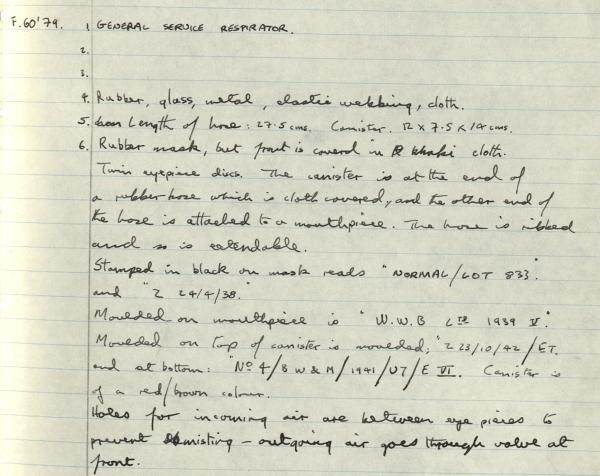 F.60'79. 1 GENERAL SERVICE RESPIRATOR.
2.
3.
4. Rubber, glass, metal, elastic webbing, cloth.
5. Length of hose: 27.5 cms. Canister. 12 x 7.5 x 19 cms.
6. Rubber mask, but front is coverd in khaki cloth.
Twin eyepiece discs. The canister is at the end of
a rubber hose which is cloth covered, and the other end of
the hose is attached to a mouthpiece. The hose is ribbed
and so is extendable.
Stamped in black on mask reads "NORMAL/LOT 833".
and "2 24/4/38."
Moulded on mouthpiece is "W.W.B LTD 1939 V."
Moveded on top of canister is moveded; "2 23/10/42/ET.
and at bottom: "No 4/B W & M/1941/U7/E VI. Canister is
of a red/brown colour.
Holes for incoming air are between eye pieces to
prevent misting - outgoing air goes through valve at
front.